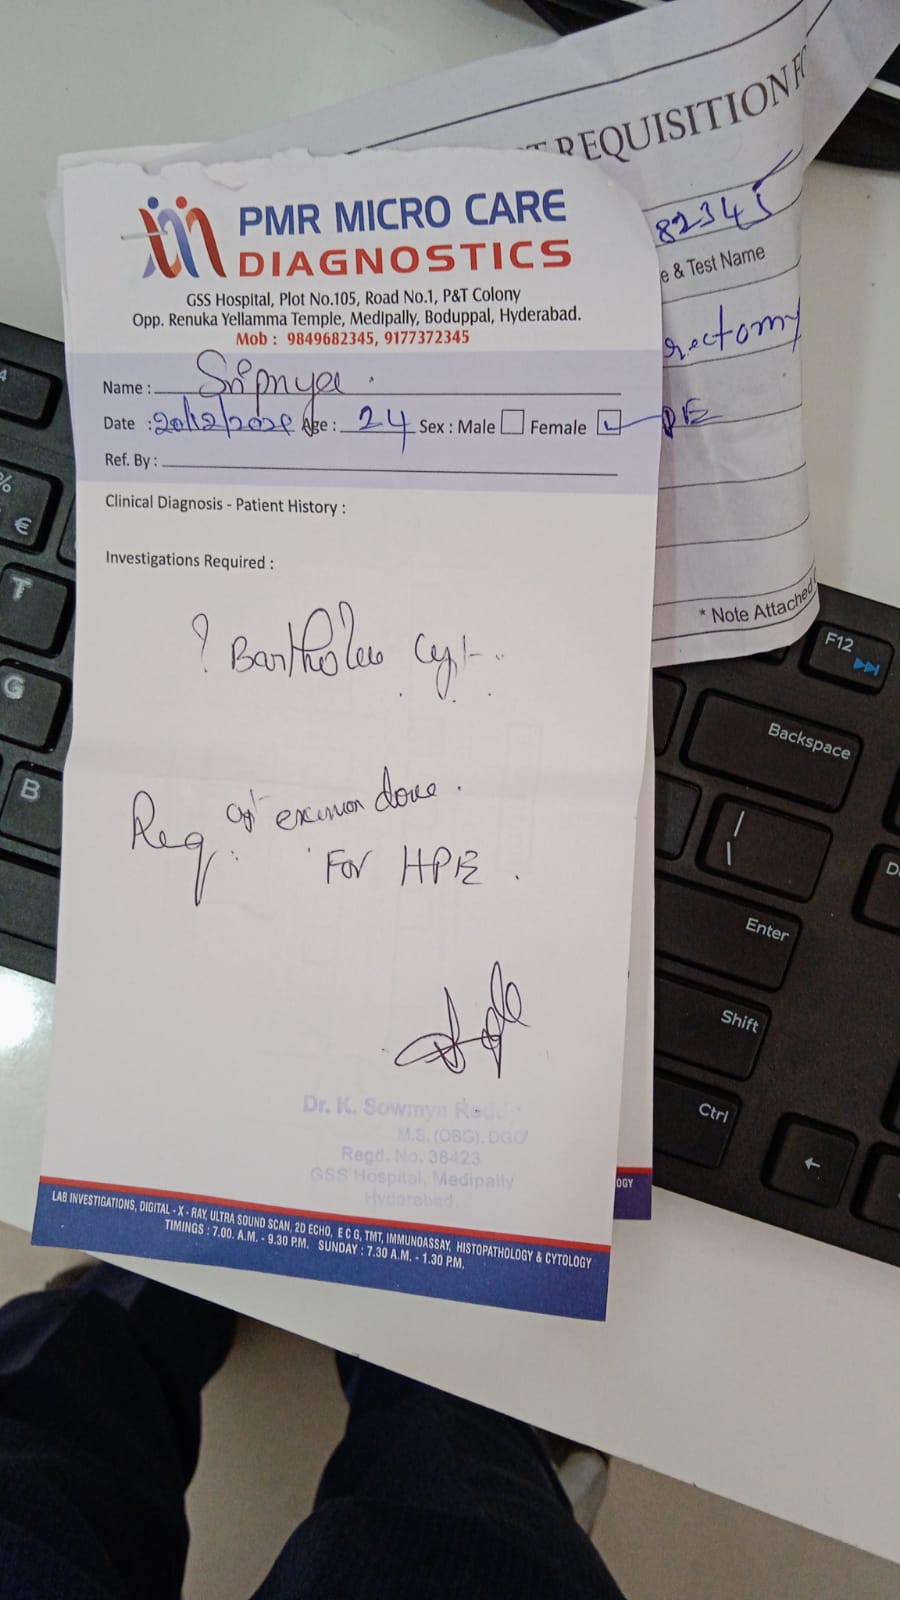 T REQUISITION F
82345
e & Test Name
rectomy
PE
* Note Attached
PMR MICRO CARE
DIAGNOSTICS
GSS Hospital, Plot No.105, Road No.1, P&T Colony
Opp. Renuka Yellamma Temple, Medipally, Boduppal, Hyderabad.
Mob : 9849682345, 9177372345
Name :
Date : 20/12/202 Age : 24 Sex : Male Female
Ref. By :
Clinical Diagnosis - Patient History :
Investigations Required :
? Cyst
Req cyst done.
For HPE.
Dr. K. Sowmya Reddy
M.S. (OBG). DGO
Regd. No. 38423
GSS Hospital, Medipally
Hyderabad
OGY
LAB INVESTIGATIONS, DIGITAL - X - RAY, ULTRA SOUND SCAN, 2D ECHO, E C G, TMT, IMMUNOASSAY, HISTOPATHOLOGY & CYTOLOGY
TIMINGS : 7.00. A.M. - 9.30 P.M. SUNDAY : 7.30 A.M. - 1.30 P.M.
4
%
€
T
G
B
F12
Backspace
|
\
Enter
Shift
Ctrl
←
D